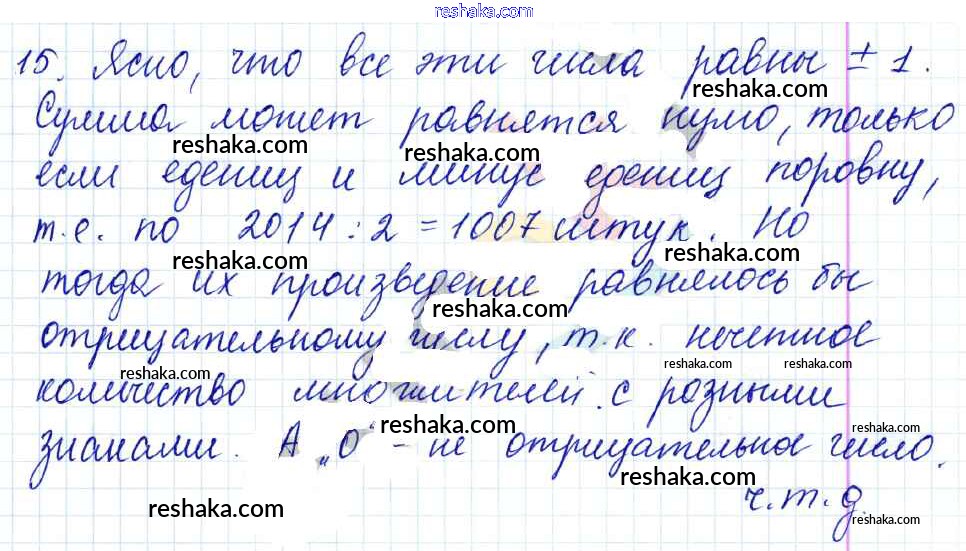 reshaka.com
15. Ясно, что все эти числа равны ± 1.
reshaka.com
Сумма может равнятся нулю, только
reshaka.com
reshaka.com
если едениц и минус едениц поровну,
т.е. по 2014 : 2 = 1007 штук. Но
reshaka.com
reshaka.com
тогда их произведение равнялось бы
reshaka.com
отрицательному числу, т.к. нечетное
reshaka.com
reshaka.com
reshaka.com
количество множителей с розными
reshaka.com
знаками. А „0“ - не отрицательное число.
reshaka.com
reshaka.com
reshaka.com
ч.т.д.
reshaka.com
reshaka.com
reshaka.com